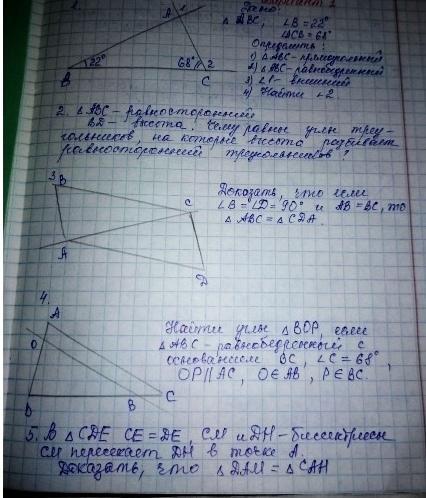 вариант 1
1.
Дано:
△ABC, ∠B = 22°
∠ACB = 68°
Определить:
1) △ABC - прямоугольный
2) △ABC - равнобедренный
3) ∠1 - внешний
4) Найти ∠2
A 1
B 22° 68° 2
C
2. △ABC - равносторонний
BD - высота. Чему равны углы треу-
гольников, на которые высота разбивает
равносторонний треугольник?
3.
B
C
A
D
Доказать, что если
∠B = ∠D = 90° и AB = BC, то
△ABC = △CDA
4.
A
O
B
C
Найти углы △BOP, если
△ABC - равнобедренный с
основанием BC, ∠C = 68°,
OP || AC, O ∈ AB, P ∈ BC.
5. В △CDE CE = DE, CM и DH - биссектрисы
CM пересекает DH в точке A.
Доказать, что △DAM = △CAH